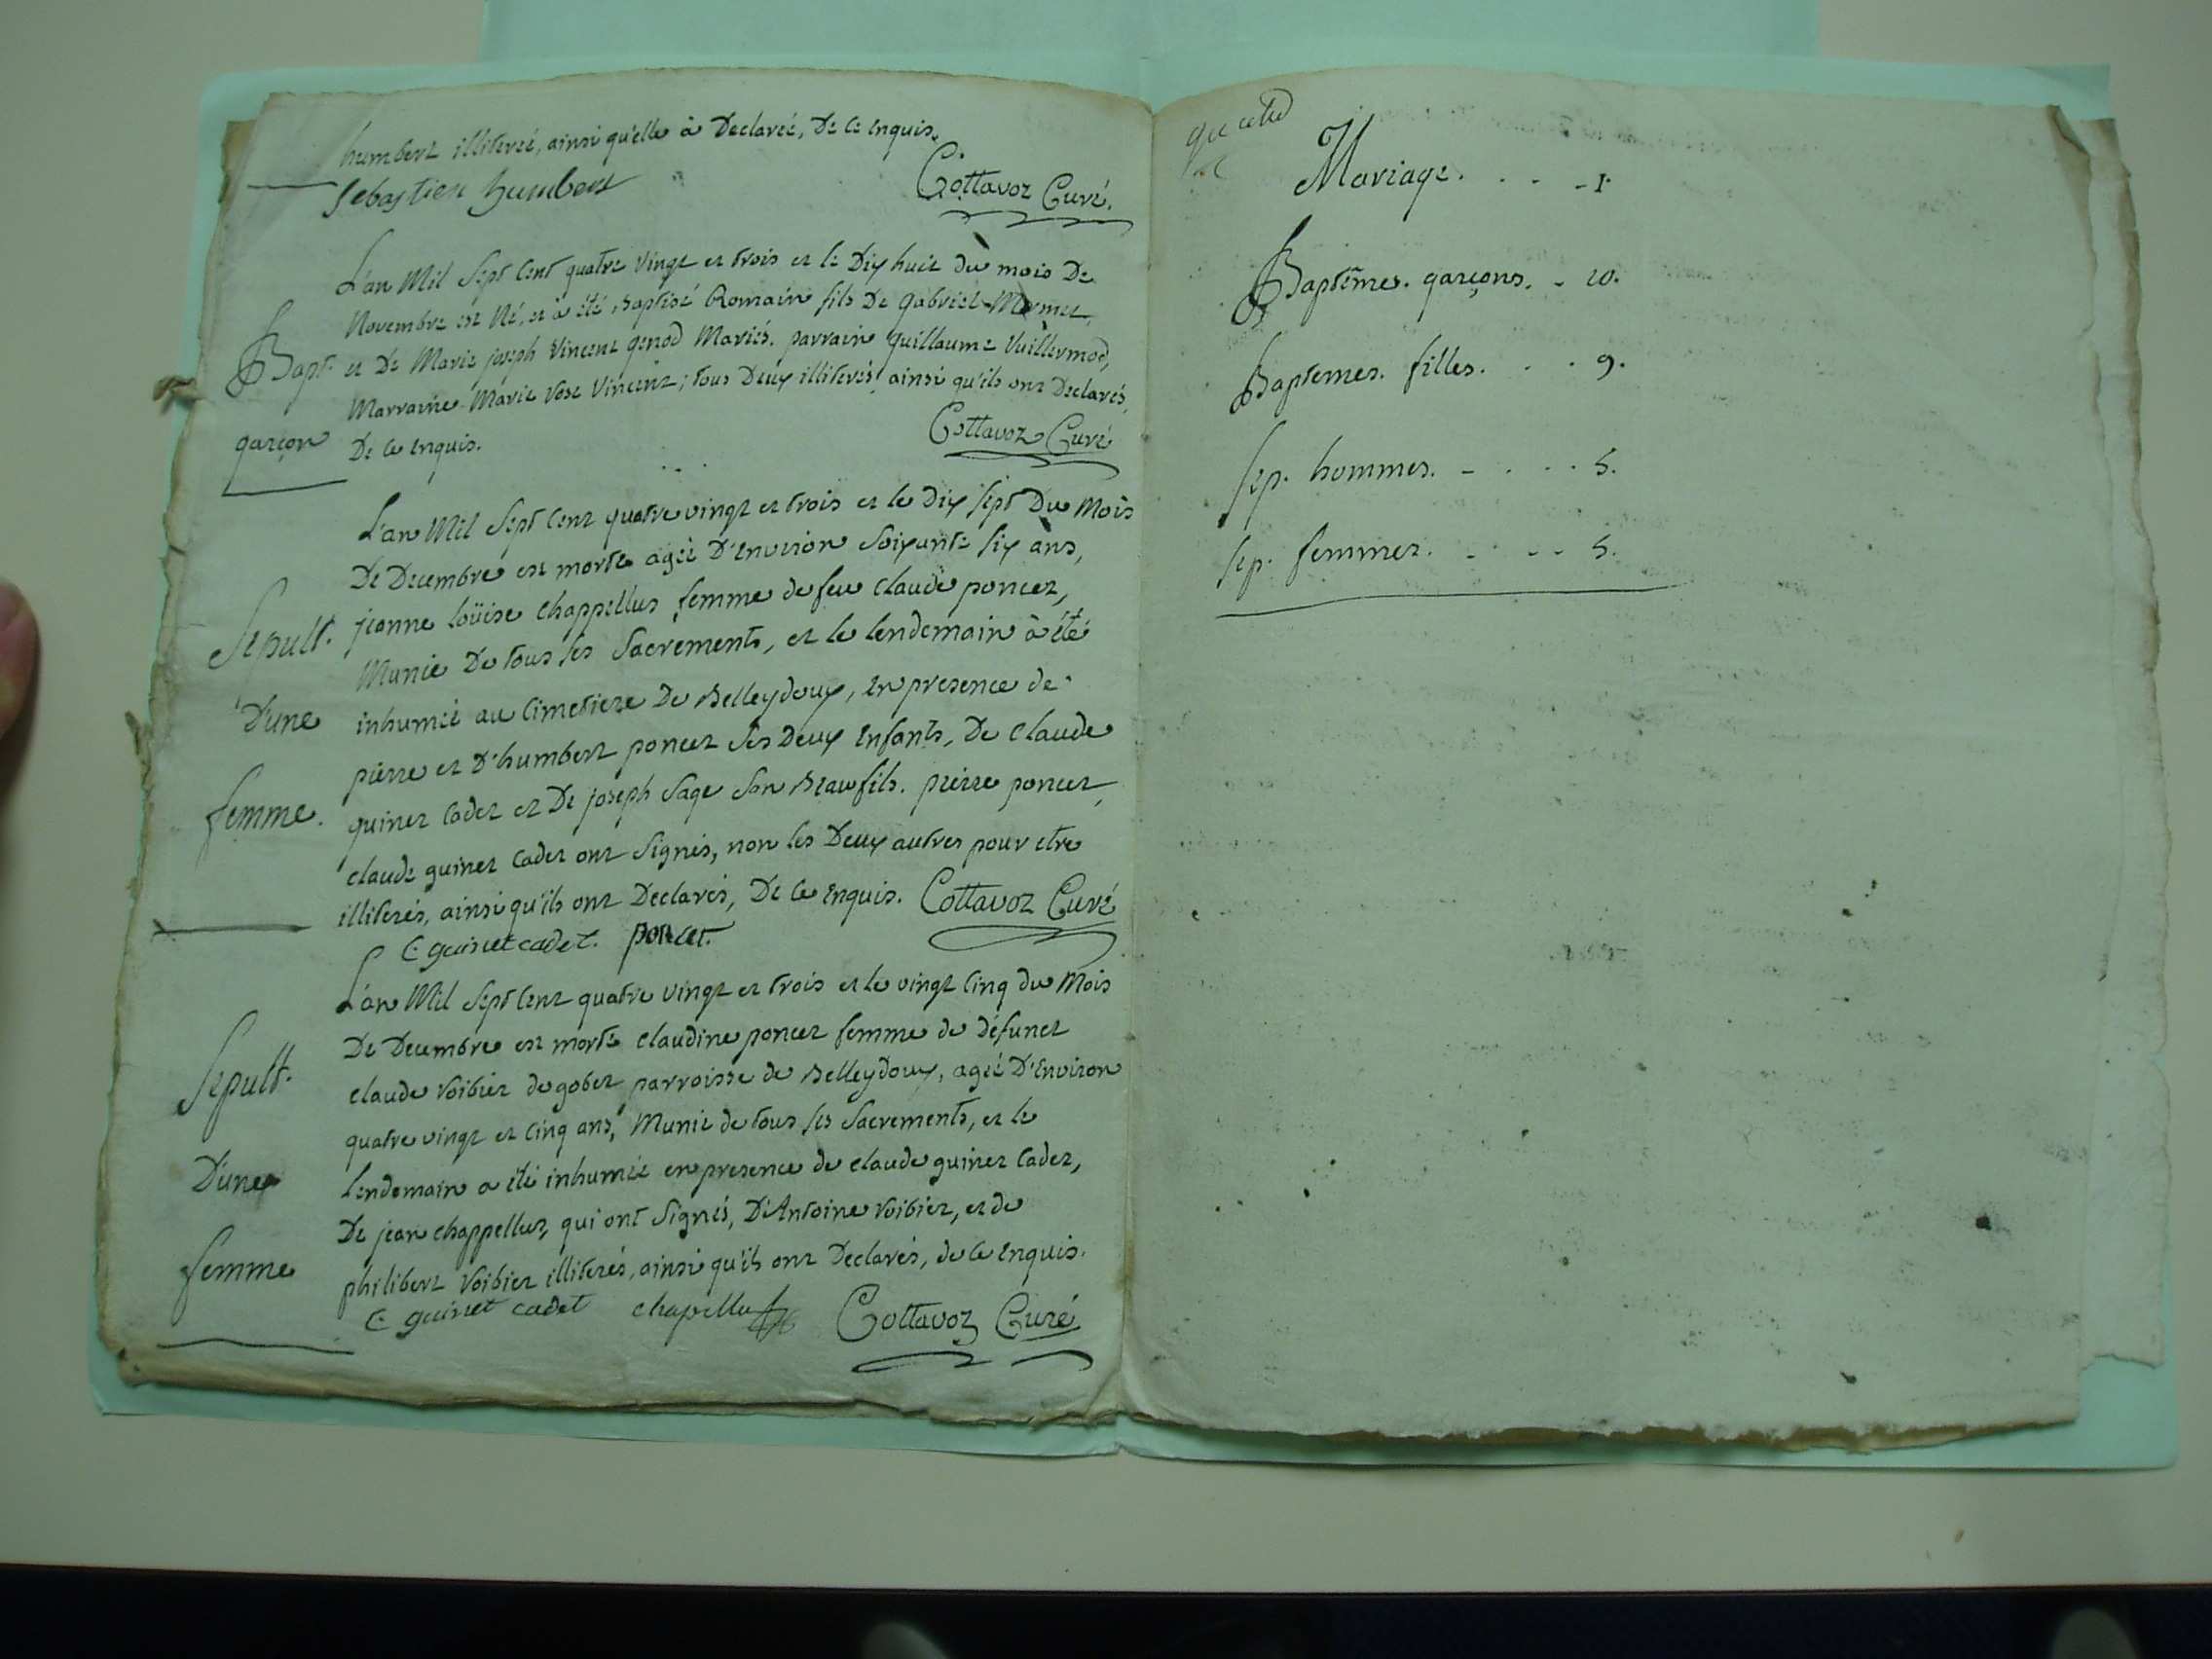 humbert illiterée, ainsi qu'elle à Declarée, De ce enquis.
Sebastien humbert Cottavoz Curé.
L'an Mil Sept Cent quatre vingt et trois et le Dix huit du mois De
Novembre est Né, et à été Baptisé Romain fils De gabriel Mermet,
Bapt. et De Marie joseph Vincent genod Mariés. parrain guillaume Vuillermod,
Marraine Marie rose Vincent; tous Deux illiterés ainsi qu'ils ont Declarés,
garçon De ce enquis. Cottavoz Curé
L'an Mil Sept Cent quatre vingt et trois et le Dix Sept Du Mois
De Decembre est morte agée D'Environ Soixante Six ans,
Sepult. jeanne loüise Chappellus femme de feu Claude poncet,
Munie De tous ses Sacrements, et le lendemain à été
D'une inhumée au Cimetiere De Belleydoux, En presence de
pierre et D'humbert poncet Ses Deux Enfants, De Claude
femme. guinet Cadet et De joseph Sage Son Beaufils. pierre poncet,
claude guinet Cadet ont Signés, non les Deux autres pour etre
illiterés, ainsi qu'ils ont Declarés, De ce enquis. Cottavoz Curé
C guinet cadet. poncet.
L'an Mil Sept Cent quatre vingt et trois et le vingt Cinq du Mois
De Decembre est morte Claudine poncet femme de défunct
Sepult. claude Voibier de gobet parroisse de Belleydoux, agée D'Environ
quatre vingt et Cinq ans, Munie de tous ses Sacrements, et le
D'une lendemain a été inhumée en presence de claude guinet Cadet,
De jean chappellus, qui ont Signés, D'Antoine Voibier, et de
femme philibert Voibier illiterés, ainsi qu'ils ont Declarés, de ce enquis.
C guinet cadet chapellus Cottavoz Curé
Mariage. . . . 1.
Baptêmes. garçons. . 10.
Baptemes. filles. . . 9.
Sep. hommes. . . . . 5.
Sep. femmes. . . . . 5.